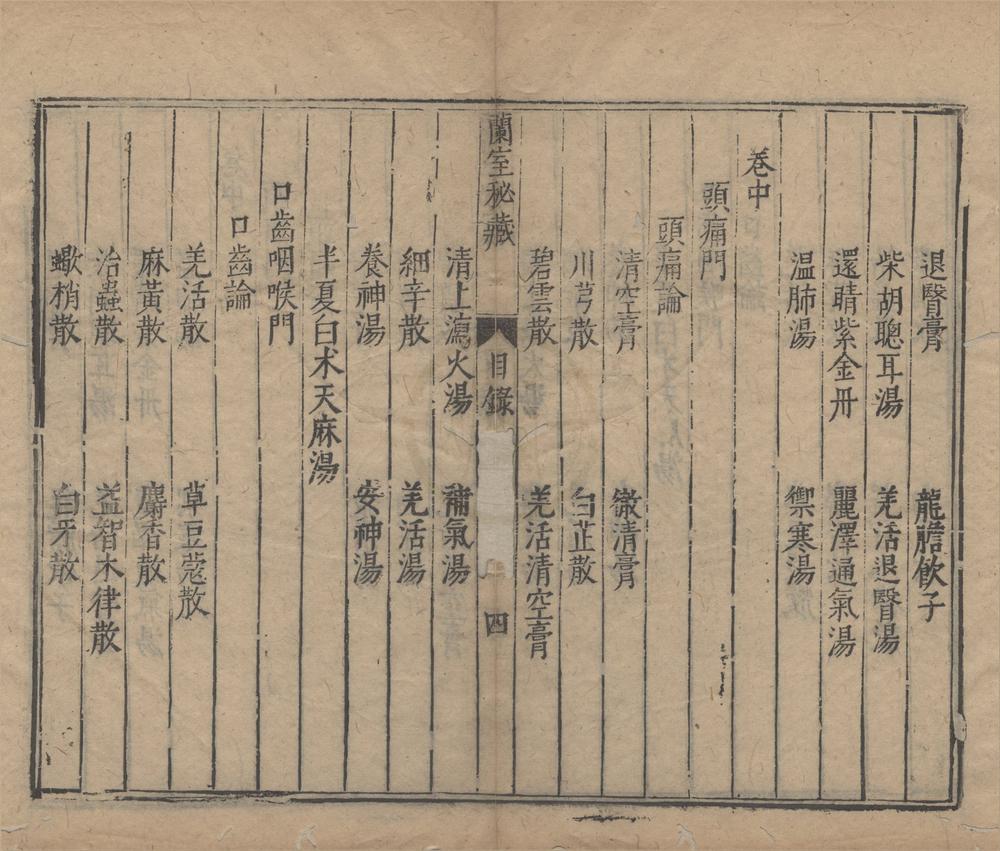 退翳膏　龍膽飲子
柴胡聰耳湯　羌活退翳湯
還睛紫金丹　麗澤通氣湯
温肺湯　禦寒湯
卷中
頭痛門
頭痛論
清空膏　徹清膏
川芎散　白芷散
碧雲散　羌活清空膏
蘭室秘藏　目錄　四
清上瀉火湯　補氣湯
細辛散　羌活湯
養神湯　安神湯
半夏白术天麻湯
口齒咽喉門
口齒論
羌活散　草豆蔻散
麻黃散　麝香散
治蟲散　益智木律散
蠍梢散　白牙散